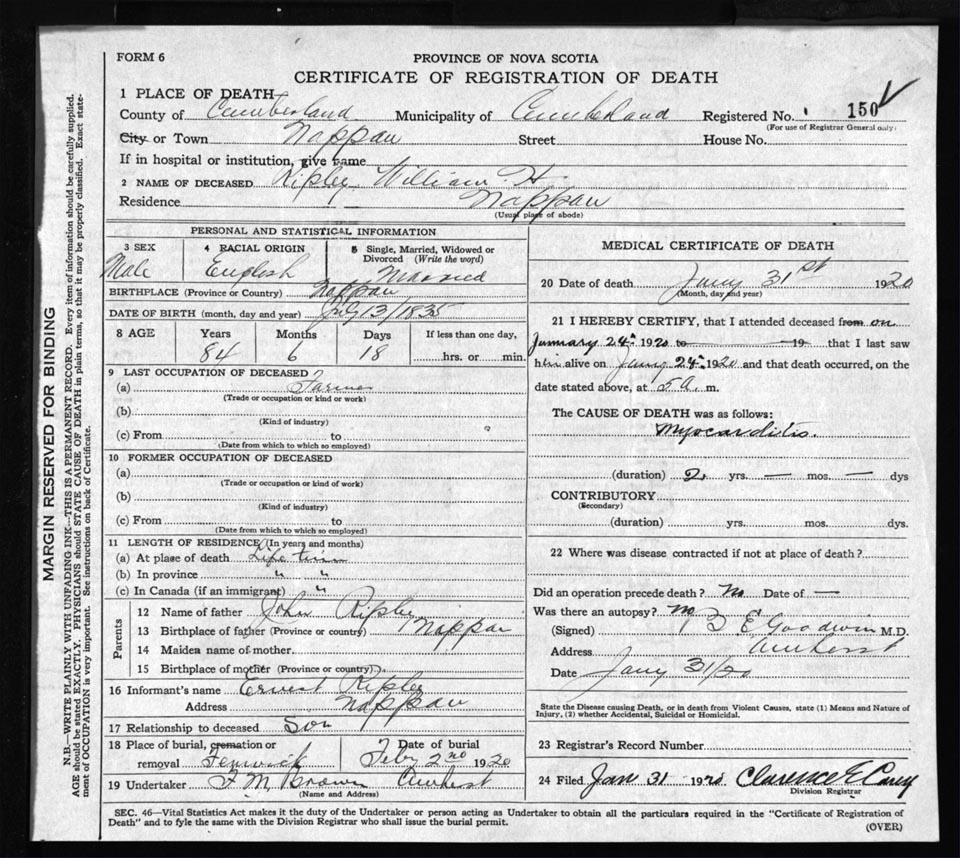 FORM 6
PROVINCE OF NOVA SCOTIA
CERTIFICATE OF REGISTRATION OF DEATH
1 PLACE OF DEATH
County of Cumberland Municipality of Cumberland Registered No. 150
(For use of Registrar General only)
City or Town Nappan Street House No.
If in hospital or institution, give name
2 NAME OF DECEASED Ripley William H
Residence Nappan
(Usual place of abode)
PERSONAL AND STATISTICAL INFORMATION
3 SEX 4 RACIAL ORIGIN 5 Single, Married, Widowed or Divorced (Write the word)
Male English Married
BIRTHPLACE (Province or Country) Nappan
DATE OF BIRTH (month, day and year) July 13/1835
8 AGE Years Months Days If less than one day,
84 6 18 hrs. or min.
9 LAST OCCUPATION OF DECEASED
(a) Farmer
(Trade or occupation or kind or work)
(b)
(Kind of industry)
(c) From to
(Date from which to which so employed)
10 FORMER OCCUPATION OF DECEASED
(a)
(Trade or occupation or kind of work)
(b)
(Kind of industry)
(c) From to
(Date from which to which so employed)
11 LENGTH OF RESIDENCE (In years and months)
(a) At place of death Life time
(b) In province " "
(c) In Canada (if an immigrant) "
Parents
12 Name of father John Ripley
13 Birthplace of father (Province or country) Nappan
14 Maiden name of mother
15 Birthplace of mother (Province or country)
16 Informant's name Ernest Ripley
Address Nappan
17 Relationship to deceased Son
18 Place of burial, cremation or removal Fenwick Date of burial Feby 2nd 1920
19 Undertaker F. M. Brown Amherst
(Name and Address)
MEDICAL CERTIFICATE OF DEATH
20 Date of death Jany 31st 1920
(Month, day and year)
21 I HEREBY CERTIFY, that I attended deceased from on
January 24th 1920 to 19 that I last saw
him alive on Jany 24th 1920 and that death occurred, on the
date stated above, at 5 a. m.
The CAUSE OF DEATH was as follows:
Myocarditis.
(duration) 2 yrs. — mos. — dys
CONTRIBUTORY
(Secondary)
(duration) yrs. mos. dys.
22 Where was disease contracted if not at place of death?
Did an operation precede death? No Date of —
Was there an autopsy? No
(Signed) B E Goodwin M.D.
Address Amherst
Date Jany 31/20
State the Disease causing Death, or in death from Violent Causes, state (1) Means and Nature of
Injury, (2) whether Accidental, Suicidal or Homicidal.
23 Registrar's Record Number
24 Filed Jan 31 1920 Clarence E Carey
Division Registrar
SEC. 46—Vital Statistics Act makes it the duty of the Undertaker or person acting as Undertaker to obtain all the particulars required in the "Certificate of Registration of
Death" and to fyle the same with the Division Registrar who shall issue the burial permit.
(OVER)
MARGIN RESERVED FOR BINDING
N.B.—WRITE PLAINLY WITH UNFADING INK—THIS IS A PERMANENT RECORD. Every item of information should be carefully supplied.
AGE should be stated EXACTLY. PHYSICIANS should STATE CAUSE OF DEATH in plain terms, so that it may be properly classified. Exact state-
ment of OCCUPATION is very important. See instructions on back of Certificate.